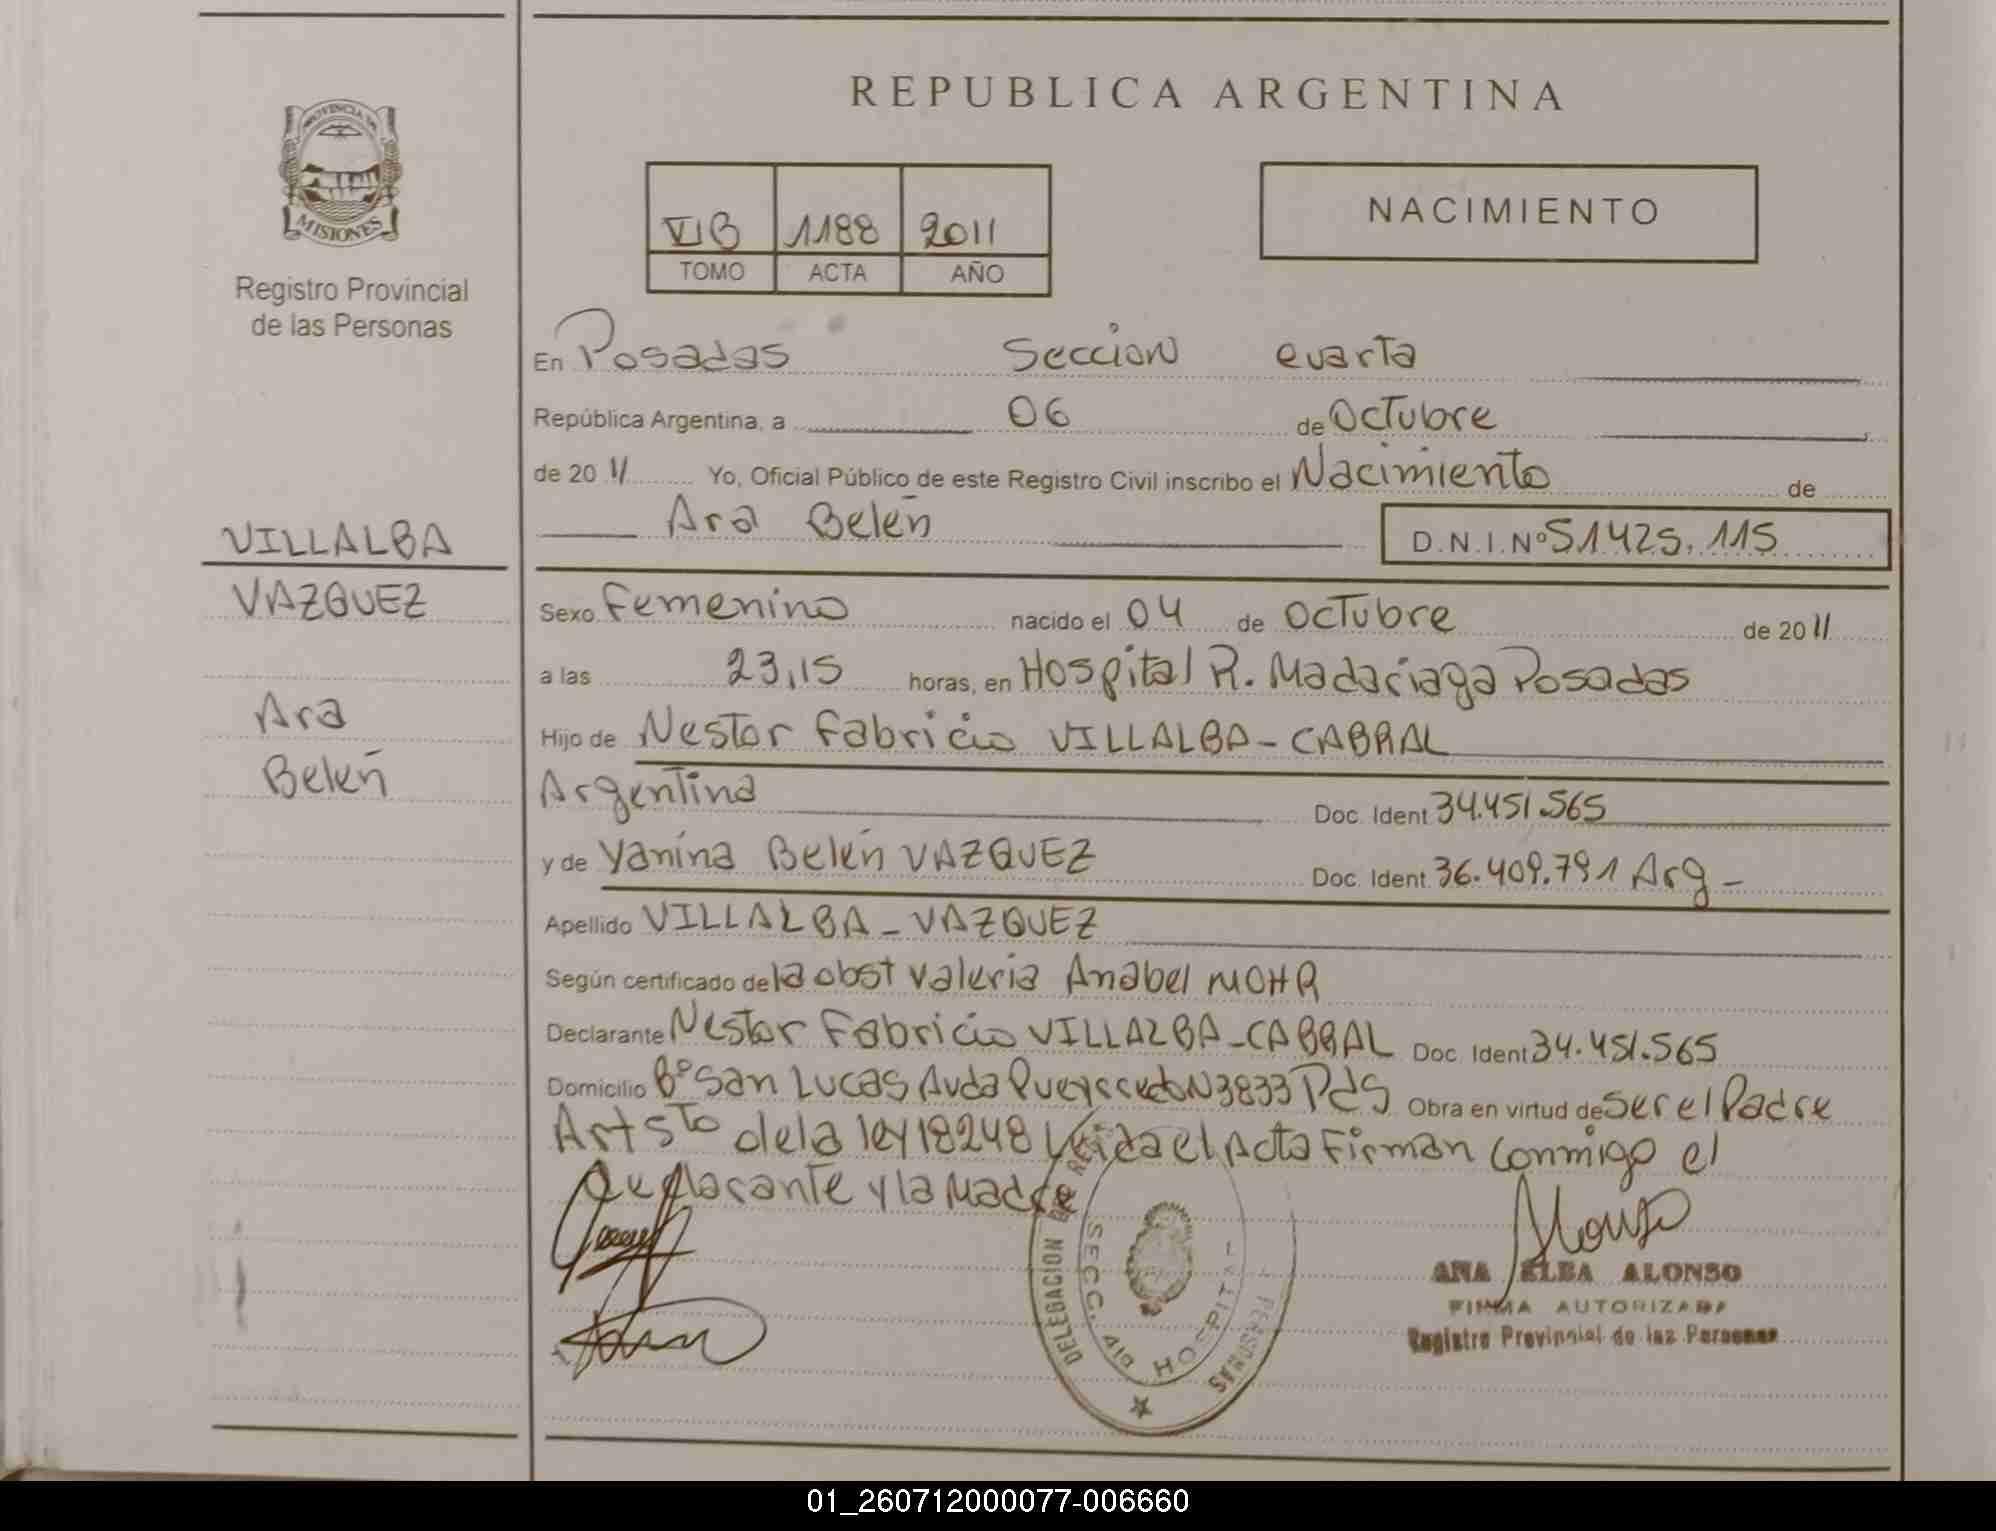 REPUBLICA ARGENTINA
PROVINCIA DE
MISIONES
Registro Provincial
de las Personas
VIB 1188 2011
TOMO ACTA AÑO
NACIMIENTO
En Posadas Seccion cuarta
República Argentina, a 06 de Octubre
de 20 11 Yo, Oficial Público de este Registro Civil inscribo el Nacimiento de
Ara Belén D.N.I.Nº 51425.115
VILLALBA
VAZQUEZ
Ara
Belén
Sexo Femenino nacido el 04 de Octubre de 20 11
a las 23,15 horas, en Hospital R. Madariaga Posadas
Hijo de Nestor Fabricio VILLALBA - CABRAL
Argentina Doc. Ident 34.451.565
y de Yanina Belén VAZQUEZ Doc. Ident. 36.409.791 Arg -
Apellido VILLALBA - VAZQUEZ
Según certificado de la obst Valeria Anabel MOHR
Declarante Nestor Fabricio VILLALBA - CABRAL Doc. Ident 34.451.565
Domicilio Bº San Lucas Avda N3833 Pds Obra en virtud de Ser el Padre
Art 5to de la ley 18248 Leida el Acta Firman conmigo el
Declarante y la Madre
DELEGACION PERSONAS
SECC. 4ta HOSPITAL
ANA ELBA ALONSO
FIRMA AUTORIZADA
Registro Provincial de las Personas
01_260712000077-006660